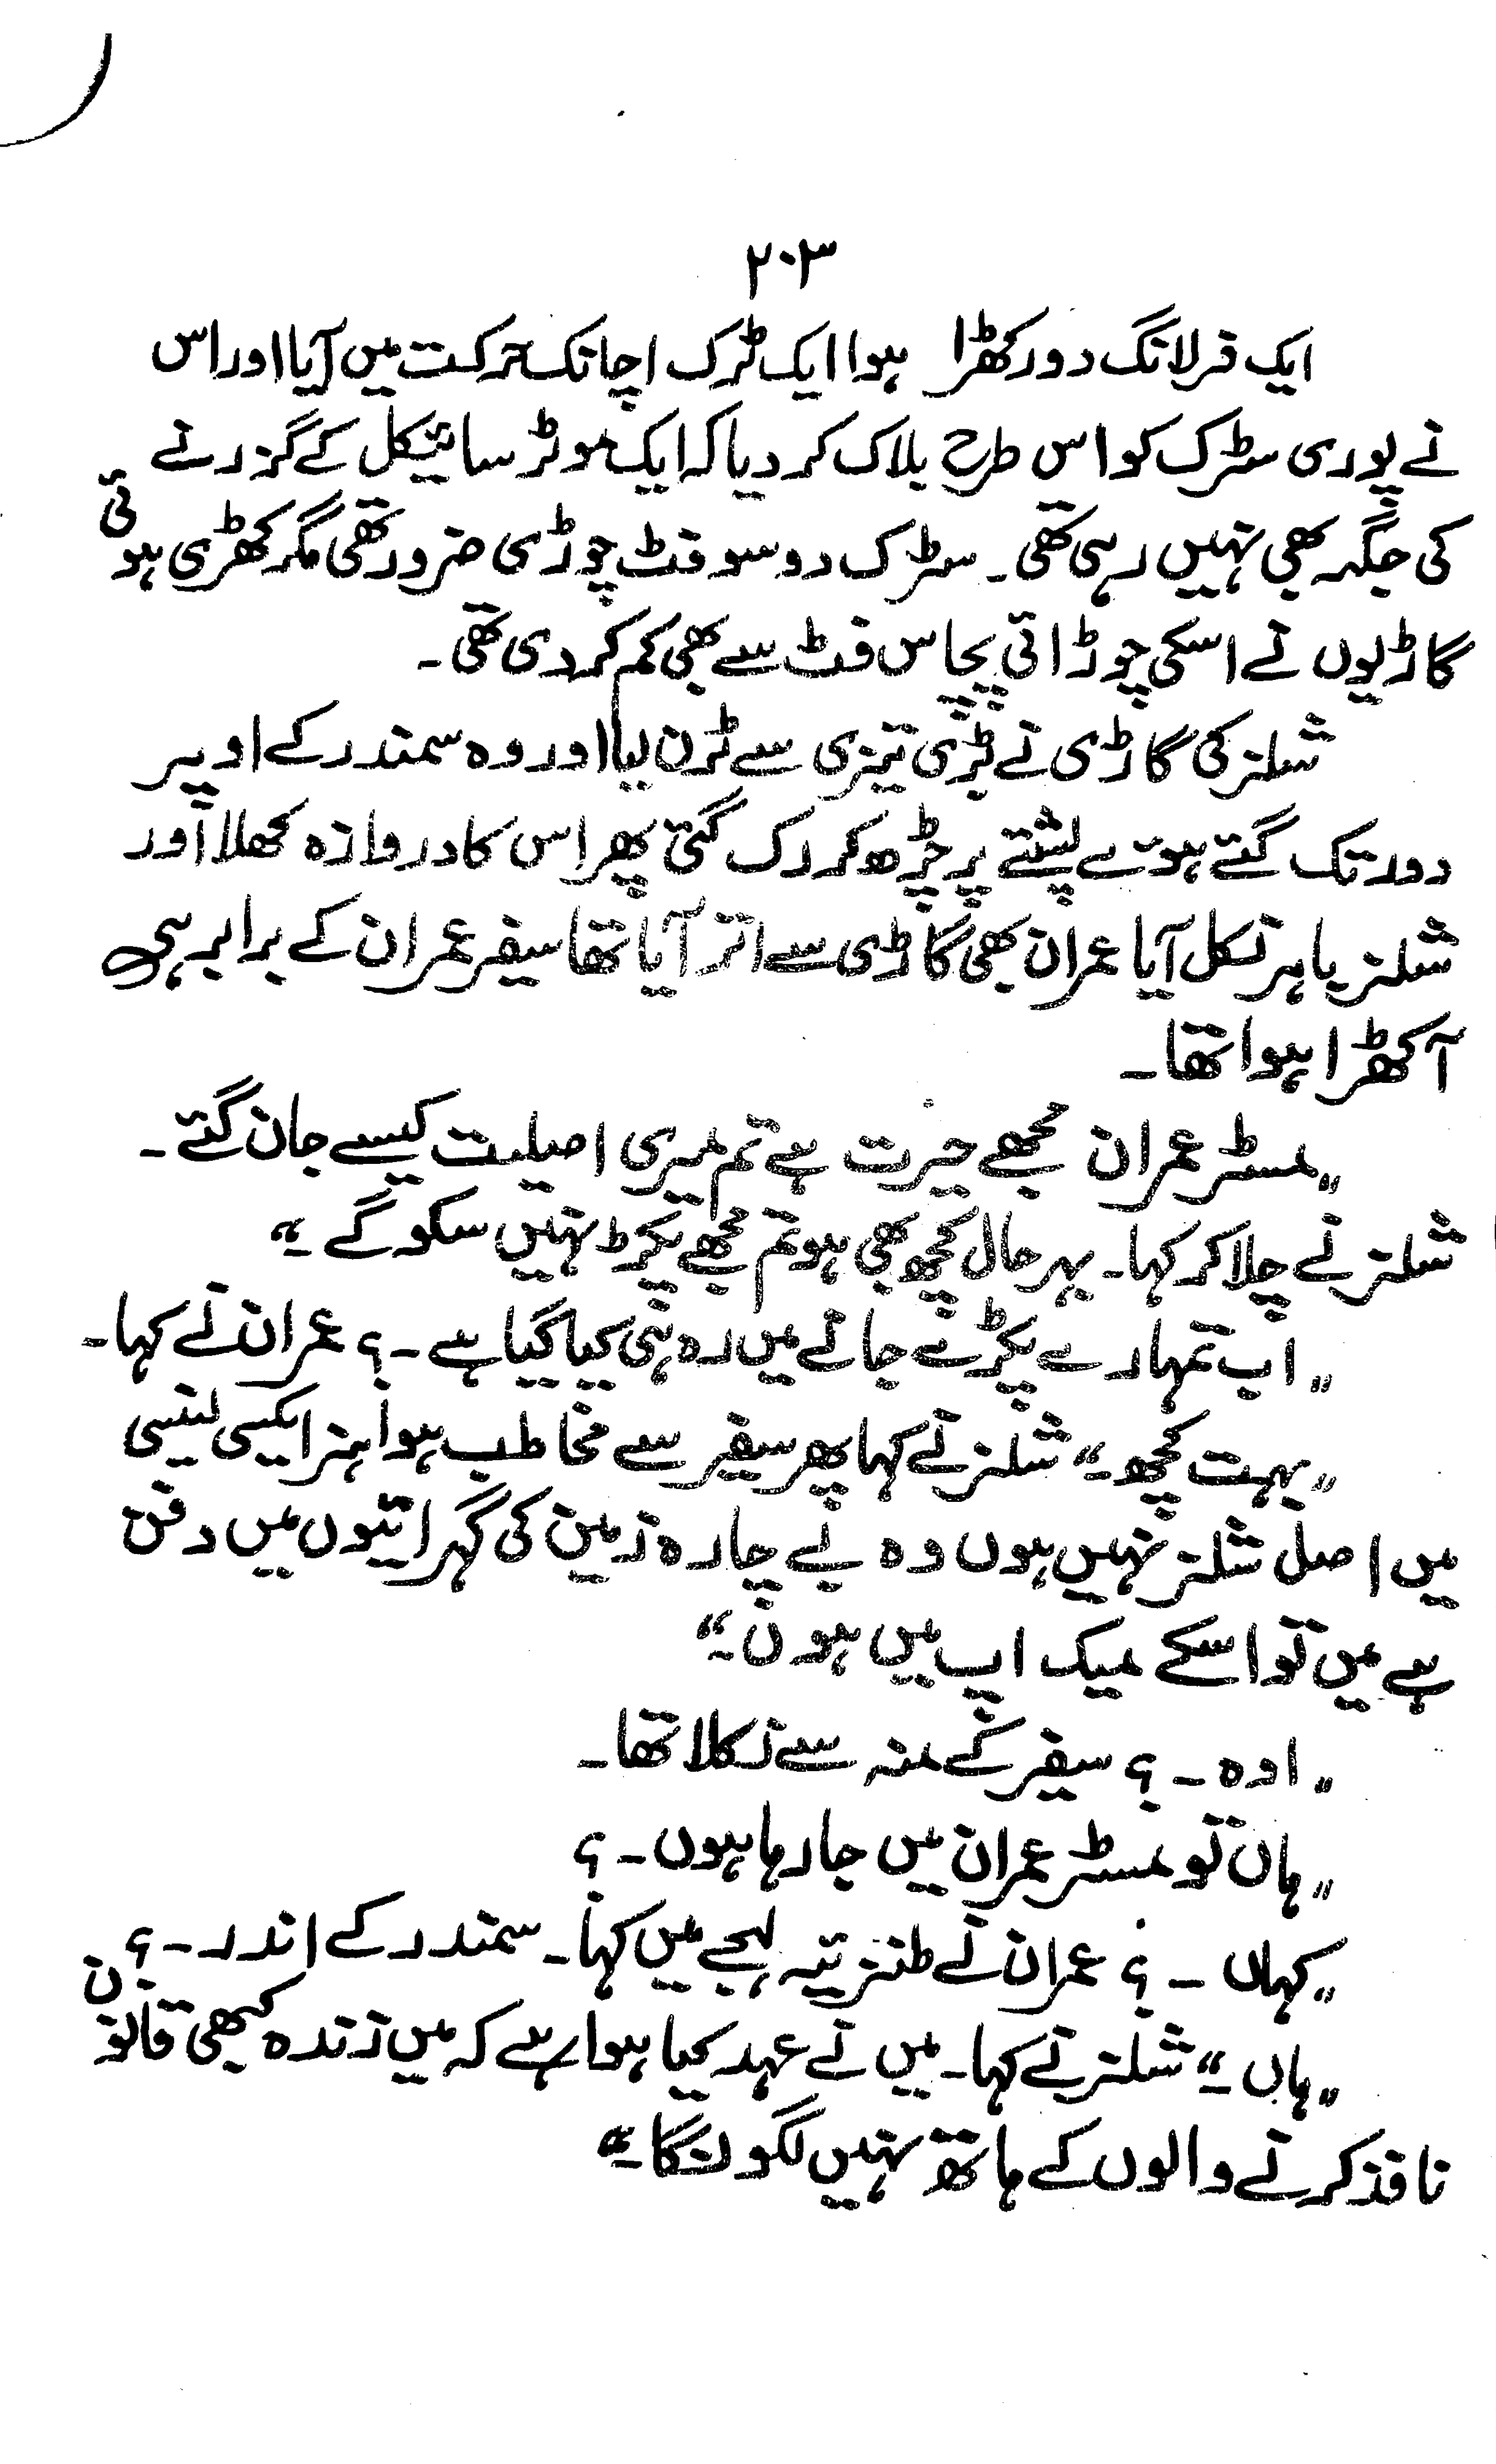 ۲۰۳
ایک فرلانگ دور کھڑا ہوا ایک ٹرک اچانک حرکت میں آیا اور اس
نے پوری سٹرک کو اس طرح بلاک کر دیا کہ ایک موٹر سائیکل کے گزرنے
کی جگہ بھی نہیں رہی تھی۔ سٹرک دو سو فٹ چوڑی ضرور تھی مگر کھڑی ہوتی
گاڑیوں نے اسکی چوڑائی پچاس فٹ سے بھی کم کر دی تھی۔
شلز کی گاڑی نے بڑی تیزی سے ٹرن لیا اور وہ سمندر کے اوپر
دور تک گئے ہوئے پشتے پر چڑھ کر رک گئی پھر اس کا دروازہ کھلا اور
شلز باہر نکل آیا عمران بھی گاڑی سے اتر آیا تھا سفیر عمران کے برابر ہی
آکھڑا ہوا تھا۔
"مسٹر عمران مجھے حیرت ہے تم میری اصلیت کیسے جان گئے۔
شلز نے چلا کر کہا۔ بہرحال کچھ بھی ہو تم مجھے پکڑ نہیں سکو گے۔"
"اب تمہارے پکڑے جانے میں رہ ہی کیا گیا ہے۔؟ عمران نے کہا۔
"بہت کچھ۔" شلز نے کہا پھر سفیر سے مخاطب ہوا ہز ایکسی لینسی
میں اصل شلز نہیں ہوں وہ بے چارہ زمین کی گہرائیوں میں دفن
ہے میں تو اسکے میک اپ میں ہوں۔"
"اوہ۔؟ سفیر کے منہ سے نکلا تھا۔
"ہاں تو مسٹر عمران میں جا رہا ہوں۔؟
"کہاں۔؟ عمران نے طنزیہ لہجے میں کہا۔ سمندر کے اندر۔؟
"ہاں۔" شلز نے کہا۔ میں نے عہد کیا ہوا ہے کہ میں زندہ کبھی قانون
نافذ کرنے والوں کے ہاتھ نہیں لگونگا۔"